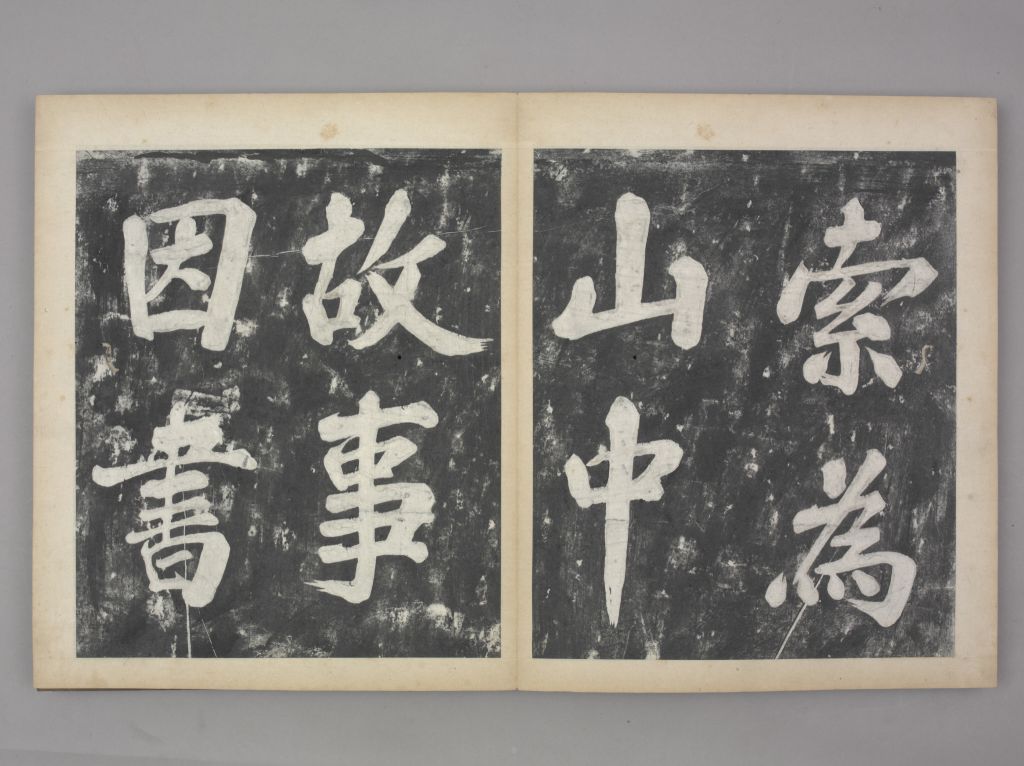 索為
山中
故事
因書